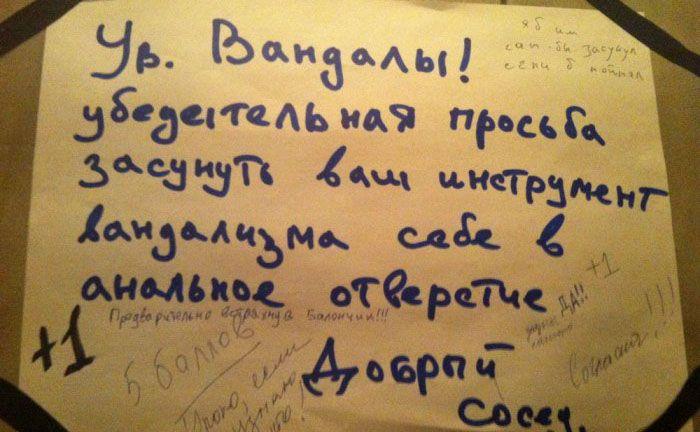 Ув. Вандалы!
убедительная просьба
засунуть ваш инструмент
вандализма себе в
анальное отверстие
Добрый
сосед.
я б им
сам бы засунул
если б поймал
+1
Предварительно встряхнув Балончик!!!
5 баллов
ДА!!
+1
Согласен!!!
если
узнаю